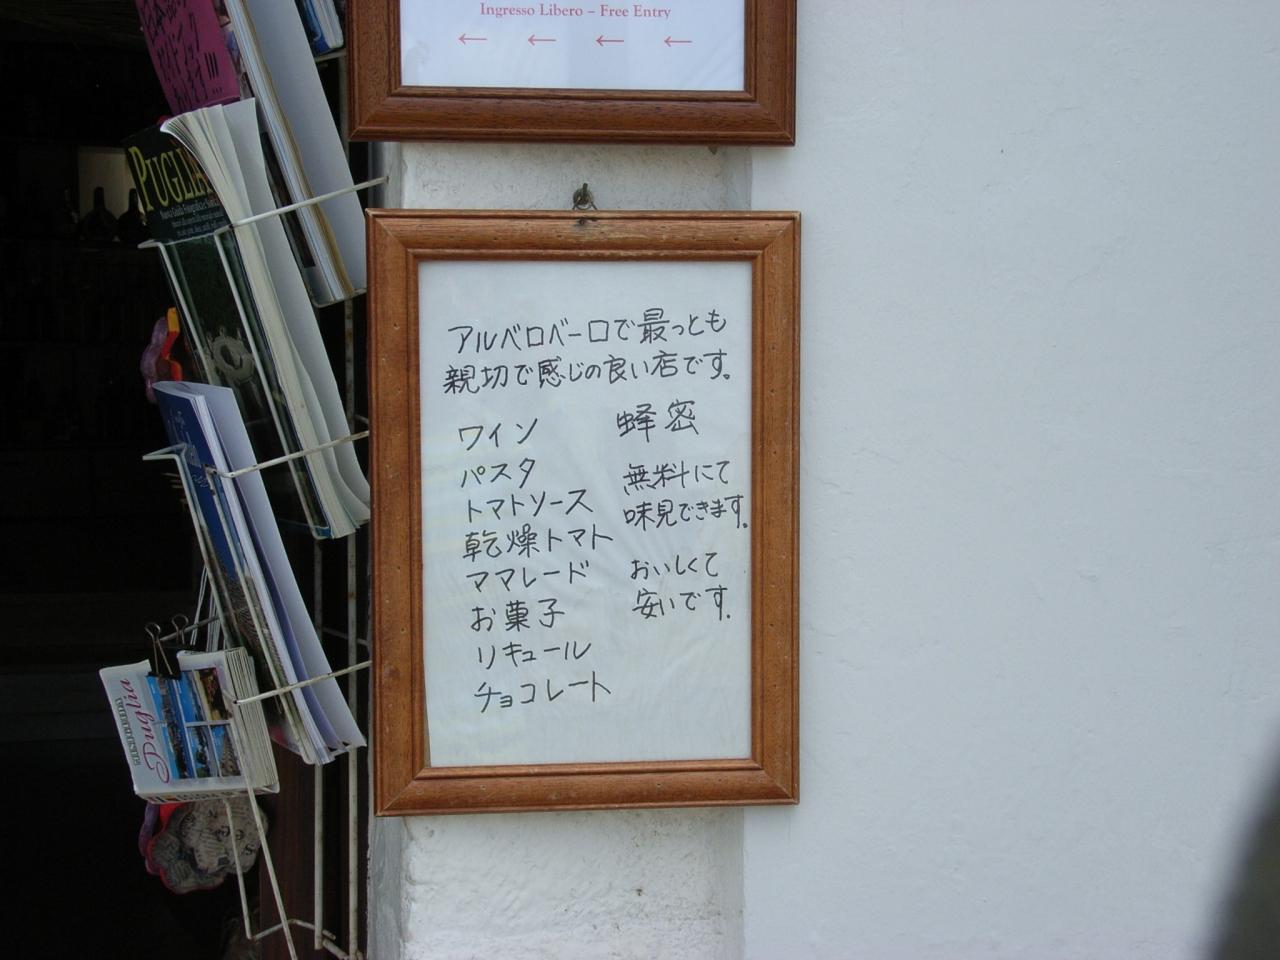 Ingresso Libero – Free Entry
← ← ← ←
アルベロベーロで最っとも
親切で感じの良い店です。
ワイン
パスタ
トマトソース
乾燥トマト
ママレード
お菓子
リキュール
チョコレート
蜂密
無料にて
味見できます.
おいしくて
安いです.
PUGLIA
Puglia